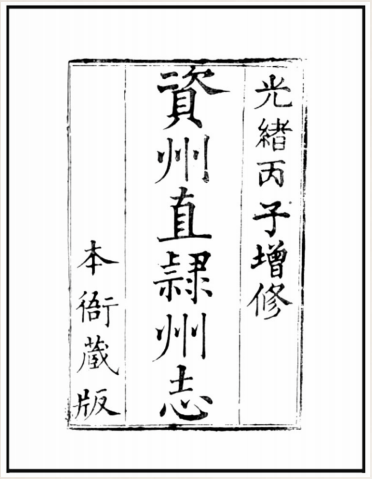 光緒丙子增修
資州直隸州志
本衙藏版